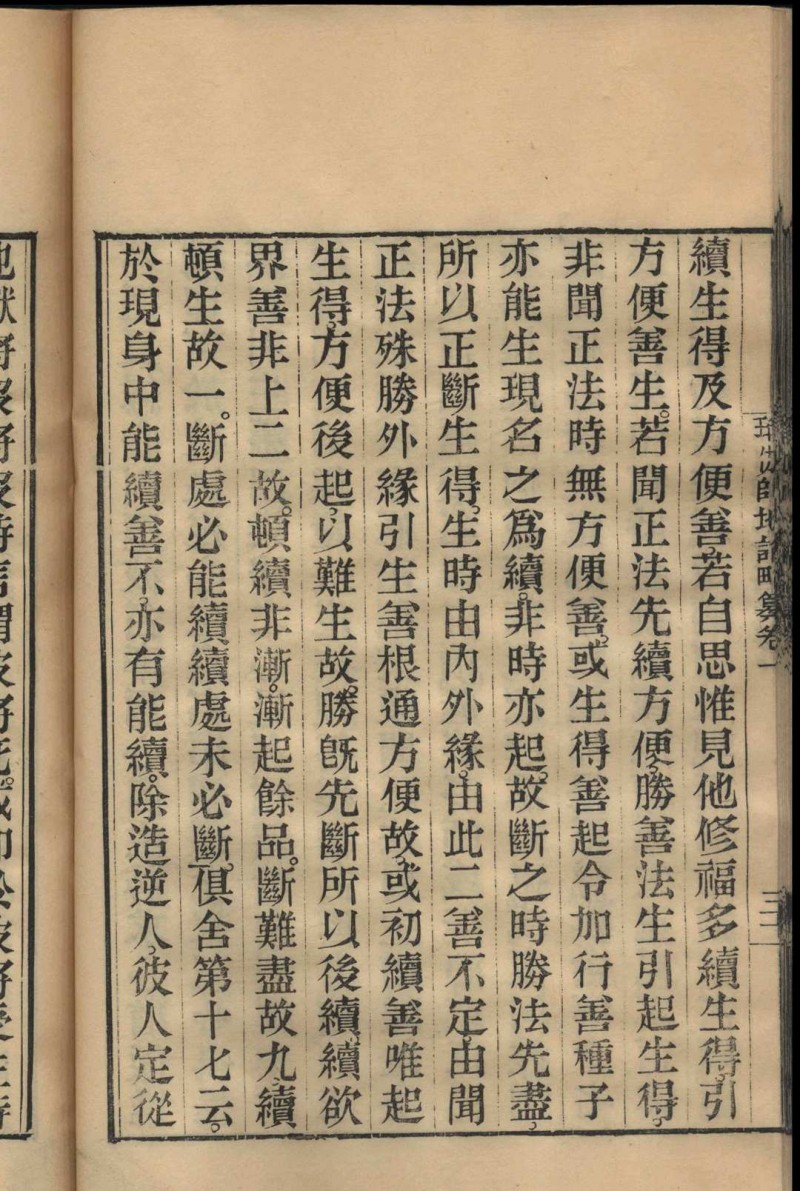 瑜伽師地論略纂卷一
三
續生得及方便善若自思惟見他修福多續生得引
方便善生。若聞正法先續方便勝善法生引起生得。
非聞正法時無方便善。或生得善起令加行善種子
亦能生現名之爲續。非時亦起。故斷之時勝法先盡。
所以正斷生得。生時由內外緣。由此二善不定由聞
正法殊勝外緣引生善根通方便故或初續善唯起
生得方便後起以難生故。勝旣先斷所以後續續欲
界善非上二故。頓續非漸。漸起餘品。斷難盡故九續
頓生故一。斷處必能續續處未必斷。俱舍第十七云。
於現身中能續善不。亦有能續。除造逆人。彼人定從